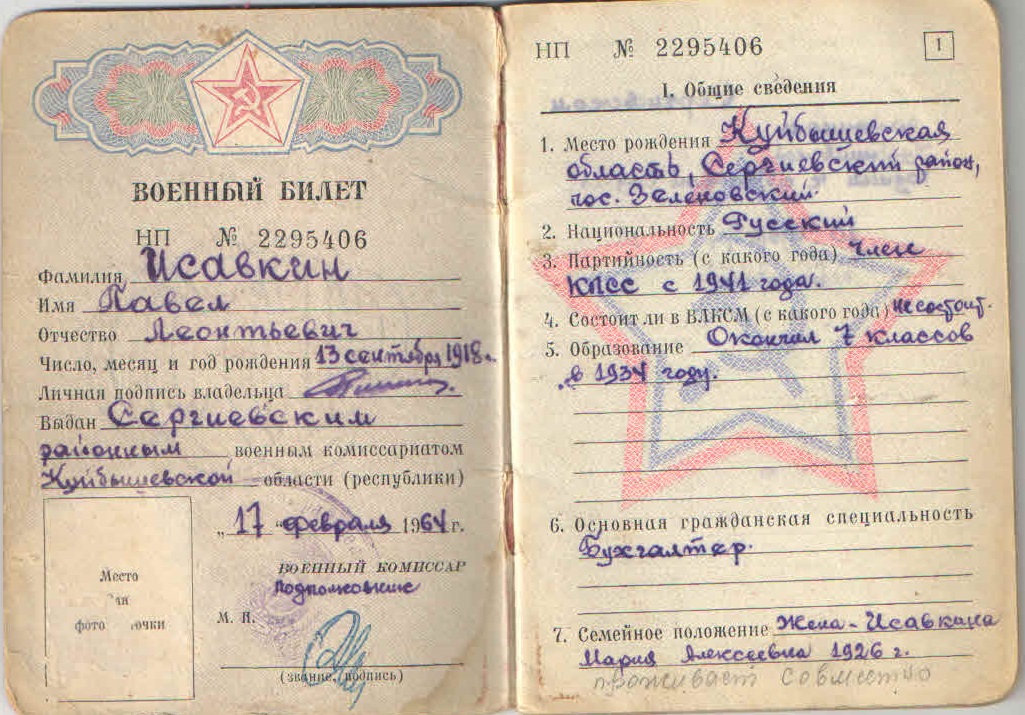 ВОЕННЫЙ БИЛЕТ
НП № 2295406
Фамилия Исавкин
Имя Павел
Отчество Леонтьевич
Число, месяц и год рождения 13 сентября 1918 г.
Личная подпись владельца
Выдан Сергиевским
районным военным комиссариатом
Куйбышевской области (республики)
„17 " февраля 1964 г.
ВОЕННЫЙ КОМИССАР
Подполковник
М. П.
(звание, подпись)
Место
фото очки
НП № 2295406
1
I. Общие сведения
1. Место рождения Куйбышевская
область, Сергиевский район,
пос. Зеленовский.
2. Национальность Русский
3. Партийность (с какого года) член
КПСС с 1941 года.
4. Состоит ли в ВЛКСМ (с какого года) не состоит.
5. Образование Окончил 7 классов
в 1934 году.
6. Основная гражданская специальность
Бухгалтер.
7. Семейное положение Жена - Исавкина
Мария Алексеевна 1926 г.
проживает совместно